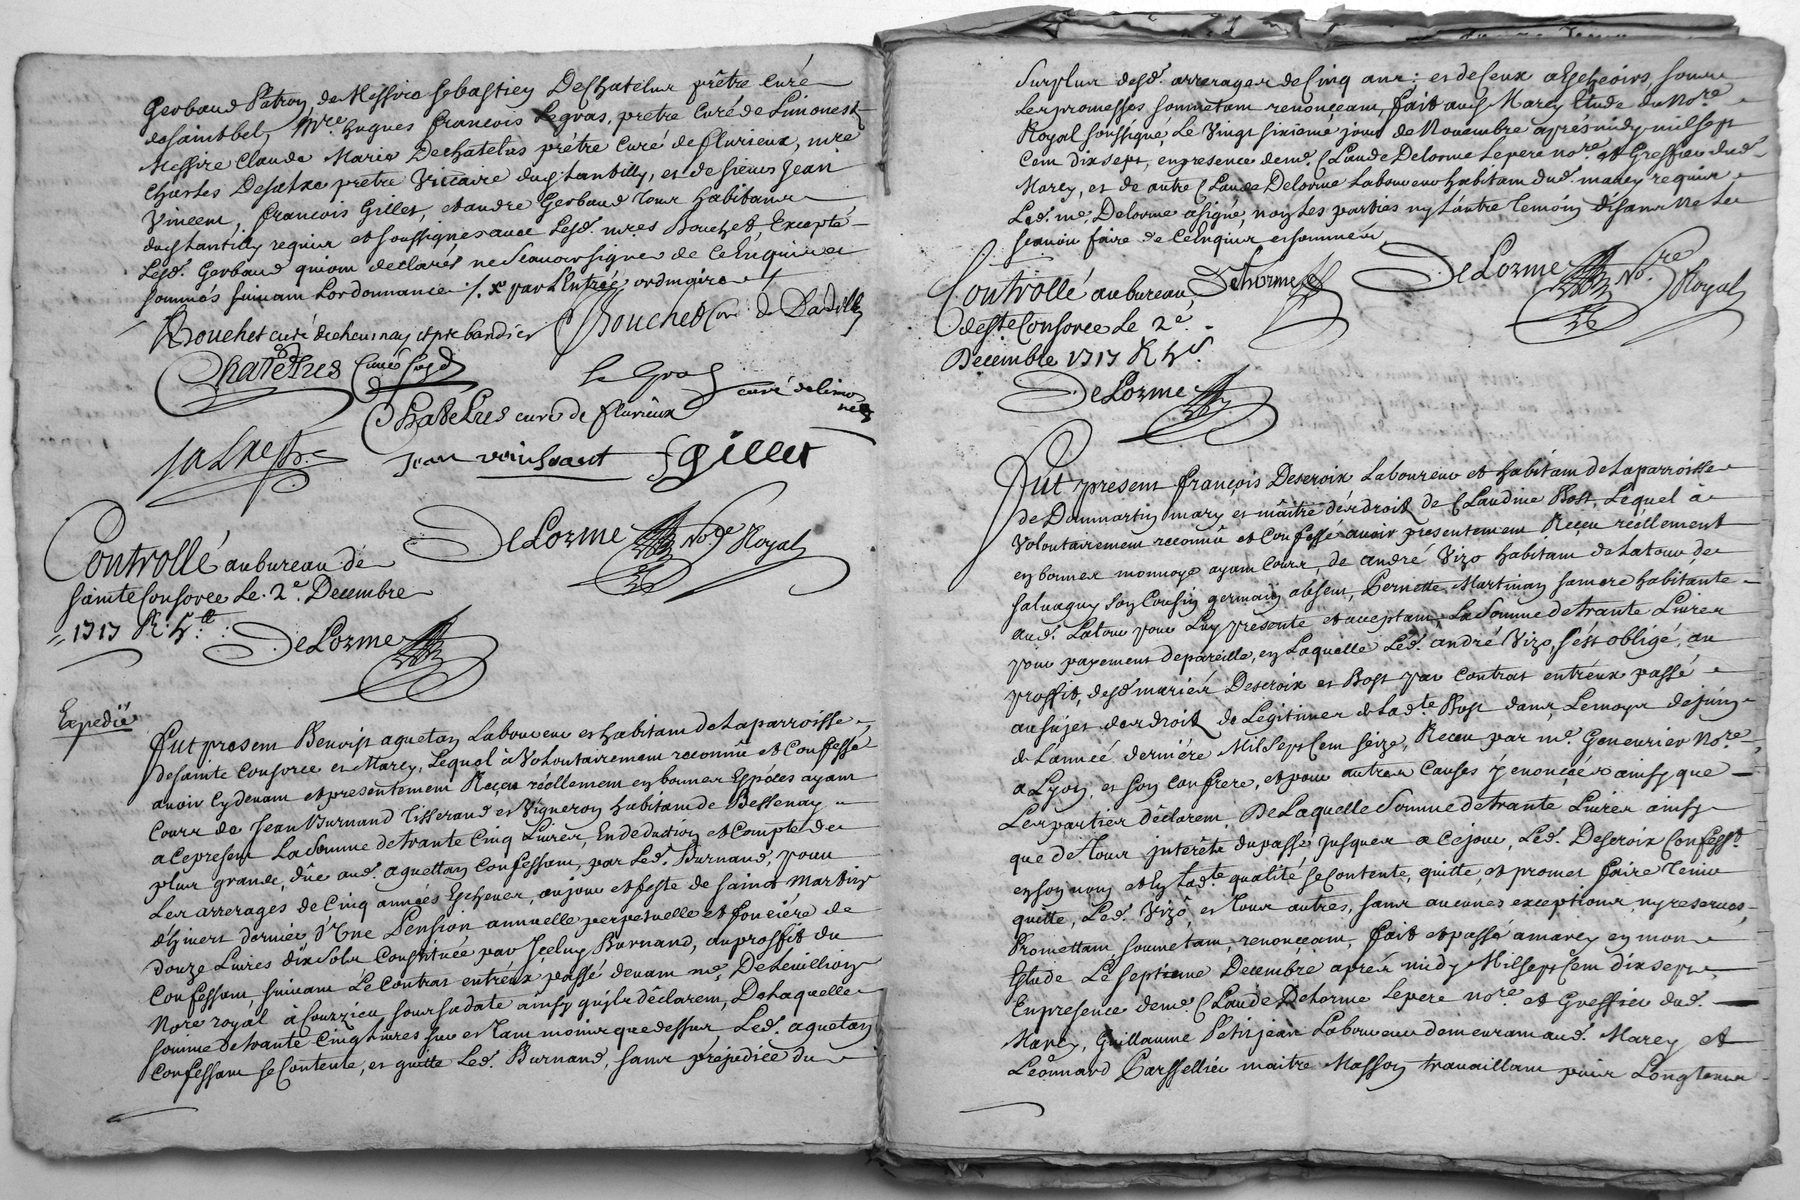 Gerbaud Patron, de Messire Sebastien Deschatelus prêtre curé
de saintbel, Mre. hugues françois Legras, pretre Curé de Limonest
Messire Claude Marie Dechatelus prêtre Curé de flurieux, mre
Charles prêtre Viccaire dud Lantilly, et de sieurs Jean
Vincent, françois Gillet, et andre Gerbaud tous habitans
dud Lantilly requis et soussignes avec Lesd. mres Bouchet, Excepté
Led. Gerbaud qui ont declarés ne Scavoir signer de ce Enquis et
sommés suivant Lordonnance ./. x par L'Entrée ordinaire /
Bouchet curé de chevinay
Bouchet Curé de
Chatelus Curé
Le Gras
curé de limo
nest
Chatelus curé de flurieux
Jean vinssant
f gillet
DeLorme No.re Royal
Controllé au bureau de
sainte Consorce Le 2e. Decembre
1717 R. 5 s. tt
DeLorme
Expedié
fut present Benoist aguetan Laboureur et habitant de La parroisse
de sainte Consorce et Marcy, Lequel à Volontairement reconnû et Confessé
avoir cydevant et presentement Reçeu réellement en bonnes Espéces ayant
Cours de Jean Burnand tisserand et Vigneron habitant de Bessenay
a ce present La Somme de trante Cinq Livres, En deduction et Compte de
plus grande, dûe aud. aguettan Confessant, par Led. Burnand, pour
Les arrerages de Cinq années Escheues, au jour et feste de saint Martin
d'hivert dernier d'Une Pension annuelle perpetuelle et fonciére de
douze Livres dix sols Constituée par Jceluy Burnand, au proffit du
Confessant, suivant Le Contrat entréux passé devant me. Deleuillion
Nore royal à Courzieu sous sa date ainsy qu'ils déclarent, De Laquelle
somme de trante Cinq Livres sur et tant moins que dessus, Led. aguetan
Confessant se Contente, et quitte Led. Burnand, sans préjudice du
Surplus desd. arrerages de Cinq ans : et de Ceux a Escheoirs, sous
Les promesses, soumettant renonçeant, fait aud Marcy Etude du No.re
Royal soussigné, Le Vingt sixiéme jour de Novembre aprés midy mil sept
Cent dix sept, en presence de me. Claude Delorme Le pere no.re et Greffier dud.
Marcy, et de autre Claude Delorme Laboureur habitant dud. marcy requis
Led. me. Delorme a signé, non Les parties ny L'autre temoin disant ne Le
scavoir faire de ce Enquis et sommés
Controllé au bureau
de ste Consorce Le 2e.
Decembre 1717 R 5 s.
Delorme
DeLorme No.re Royal
DeLorme
fut present françois Descroix Laboureur et habitant de La parroisse
de Dommartin mary et maitre des droits de Claudine Bost, Lequel à
Volontairement reconnû et Confessé avoir presentement Reçeu réellement
en bonnes monnoye ayant Cours, de andré Vizo habitant de La tour de
salvagny son Cousin germain absent, Pernette Martinan sa mere habitante
aud. Latour pour Luy presente et acceptant La Somme de trante Livres
pour payement de pareille, en Laquelle Led. andré Vizo, s'est obligé, au
proffit, desd mariés Descroix et Bost par Contrat entreux passé
au sujet des droits de Legitimes de Lad.te Bost dans, Le mois de juin
de L'année derniére Mil Sept Cent seize, Reçeu par me. Genevrier No.re
a Lyon, et son Confrere, et pour autres Causes y enoncées ainsy que
Les parties déclarent, De Laquelle Somme de trante Livres ainsy
que de tous interêts du passé jusques a ce jour, Led. Descroix Confesst.
en son nom et en Lad.te qualité se Contente, quitte, et promet faire tenir
quitte, Led. Vizo, et tous autres, sans aucunes exceptions ny reserves,
Promettant, soumettant, renonceant, fait et passé a marcy en mon
Etude Le septieme Decembre aprés midy Mil Sept Cent dix sept,
En presence de me. Claude Delorme Le pere nore et Greffier dud.
Marcy, Guillaume Petitjean Laboureur demeurant aud. Marcy et
Léonnard Parssellier maitre Masson travaillant puis Longtemps